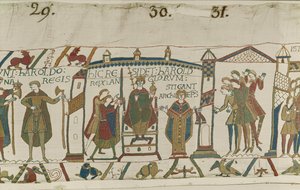 29. 30. 31.
VNT: HAROLDO:
NA REGIS
HIC RE SIDET: HAROLD
REX: AN GLORVM:
STIGANT
ARCHIEPS